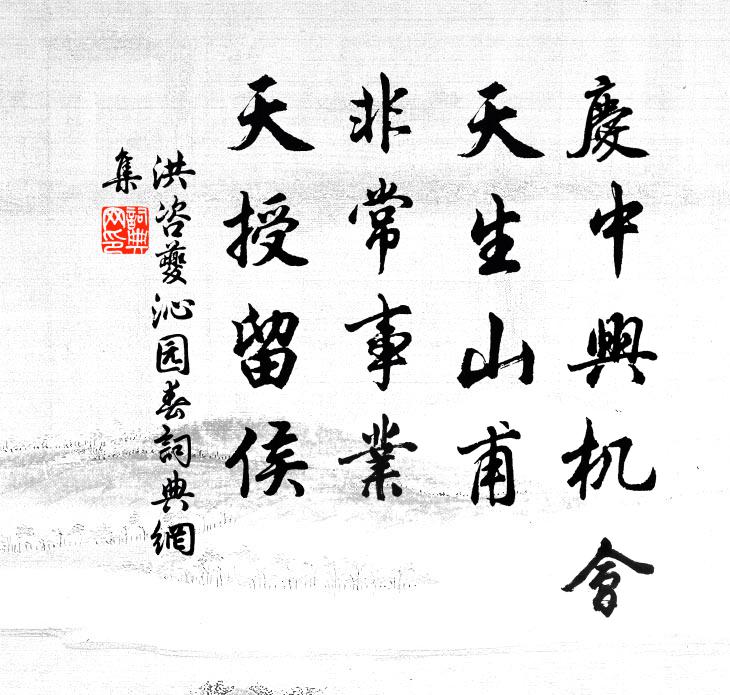 慶中興机會
天生山甫
非常事業
天授留侯
洪咨夔沁园春詞典網
集
詞典
网印